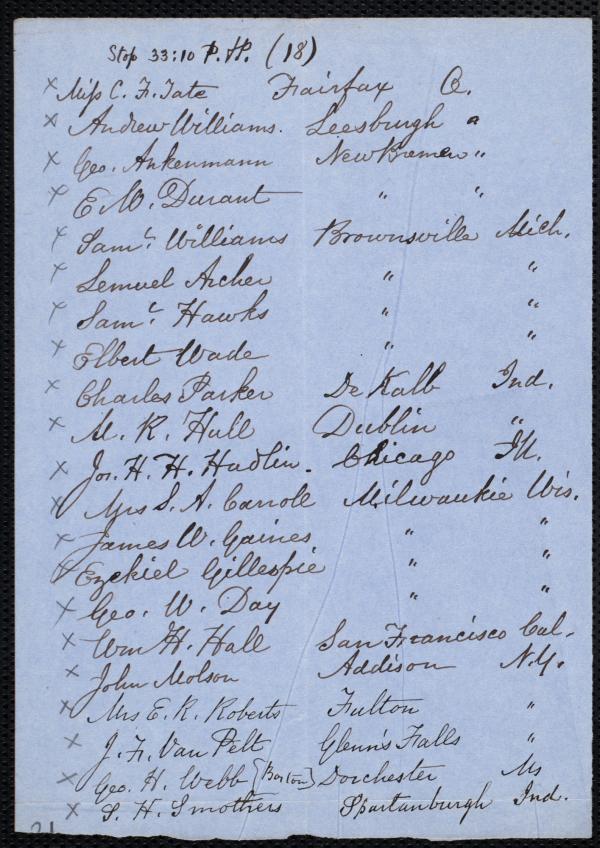 Stop 33:10 P.H. (18)
x Miss C. F. Tate Fairfax O.
x Andrew Williams. Leesburgh "
x Geo. Ankenmann New Bremen "
x E. W. Durant " "
x Saml. Williams Brownsville Mich.
x Lemuel Archer " "
x Saml. Hawks " "
x Elbert Wade " "
x Charles Parker De Kalb Ind.
x M. R. Hull Dublin "
x Jos. H. H. Hadlin. Chicago Ill.
x Mrs S. A. Carroll Milwaukie Wis.
x James W. Gaines " "
x Ezekiel Gillespie " "
x Geo. W. Day " "
x Wm H. Hall San Francisco Cal.
x John Molson Addison N.Y.
x Mrs E. K. Roberts Fulton "
x J. F. Van Pelt Glenn's Falls "
x Geo. H. Webb [Boston] Dorchester Ms
x S. H. Smothers Spartanburgh Ind.